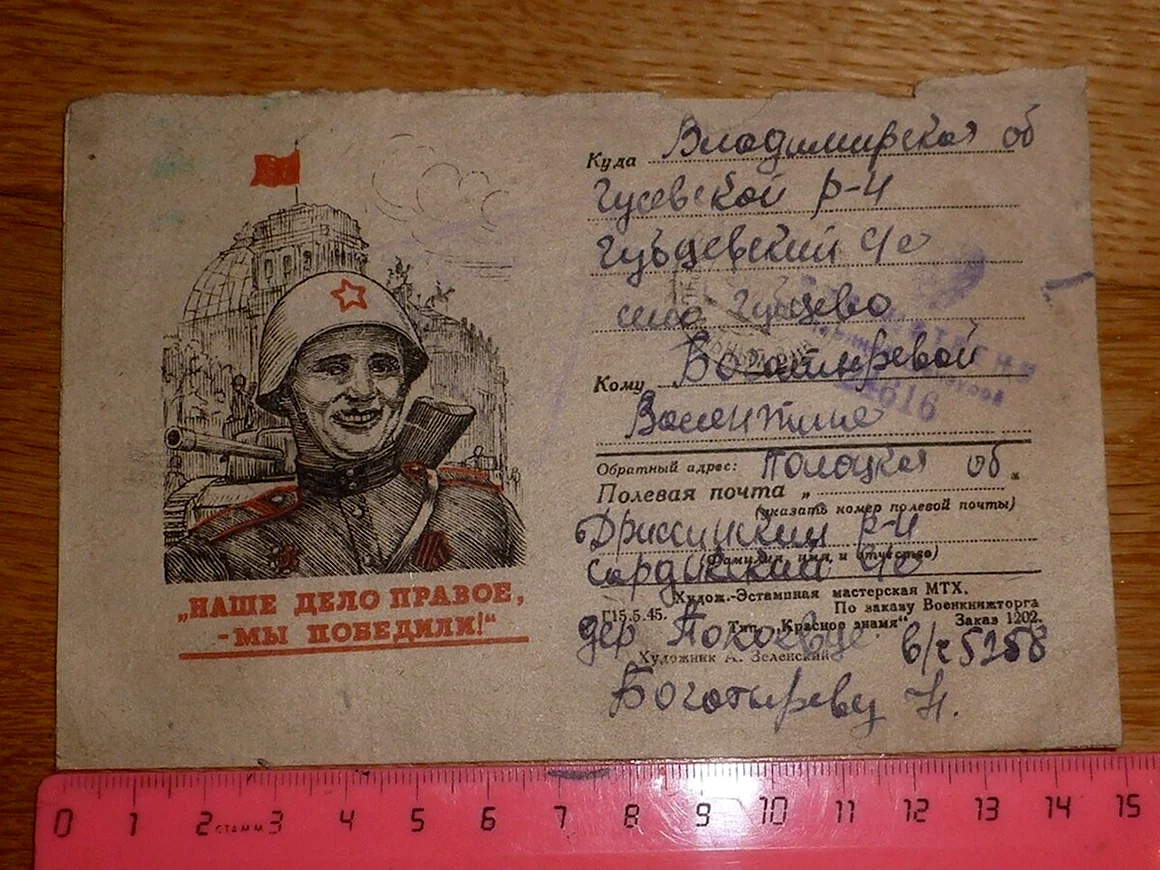 „НАШЕ ДЕЛО ПРАВОЕ,
-МЫ ПОБЕДИЛИ!“
Куда Владимирская об
Гусевской р-н
село Губцево
Кому Богатыревой
Валентине
Обратный адрес: Полоцкая об
Полевая почта „ “
(указать номер полевой почты)
Дриссинский р-н
(Фамилия, имя и отчество)
Худож.-Эстампная мастерская МТХ.
По заказу Военкнижторга
Г15.5.45. Тип. „Красное знамя“ Заказ 1202.
дер в/ч 5258
Художник А. Зеленский
Богатыреву Н.
1616
0 1 2 СТАММ 3 4 5 6 7 8 9 10 11 12 13 14 15